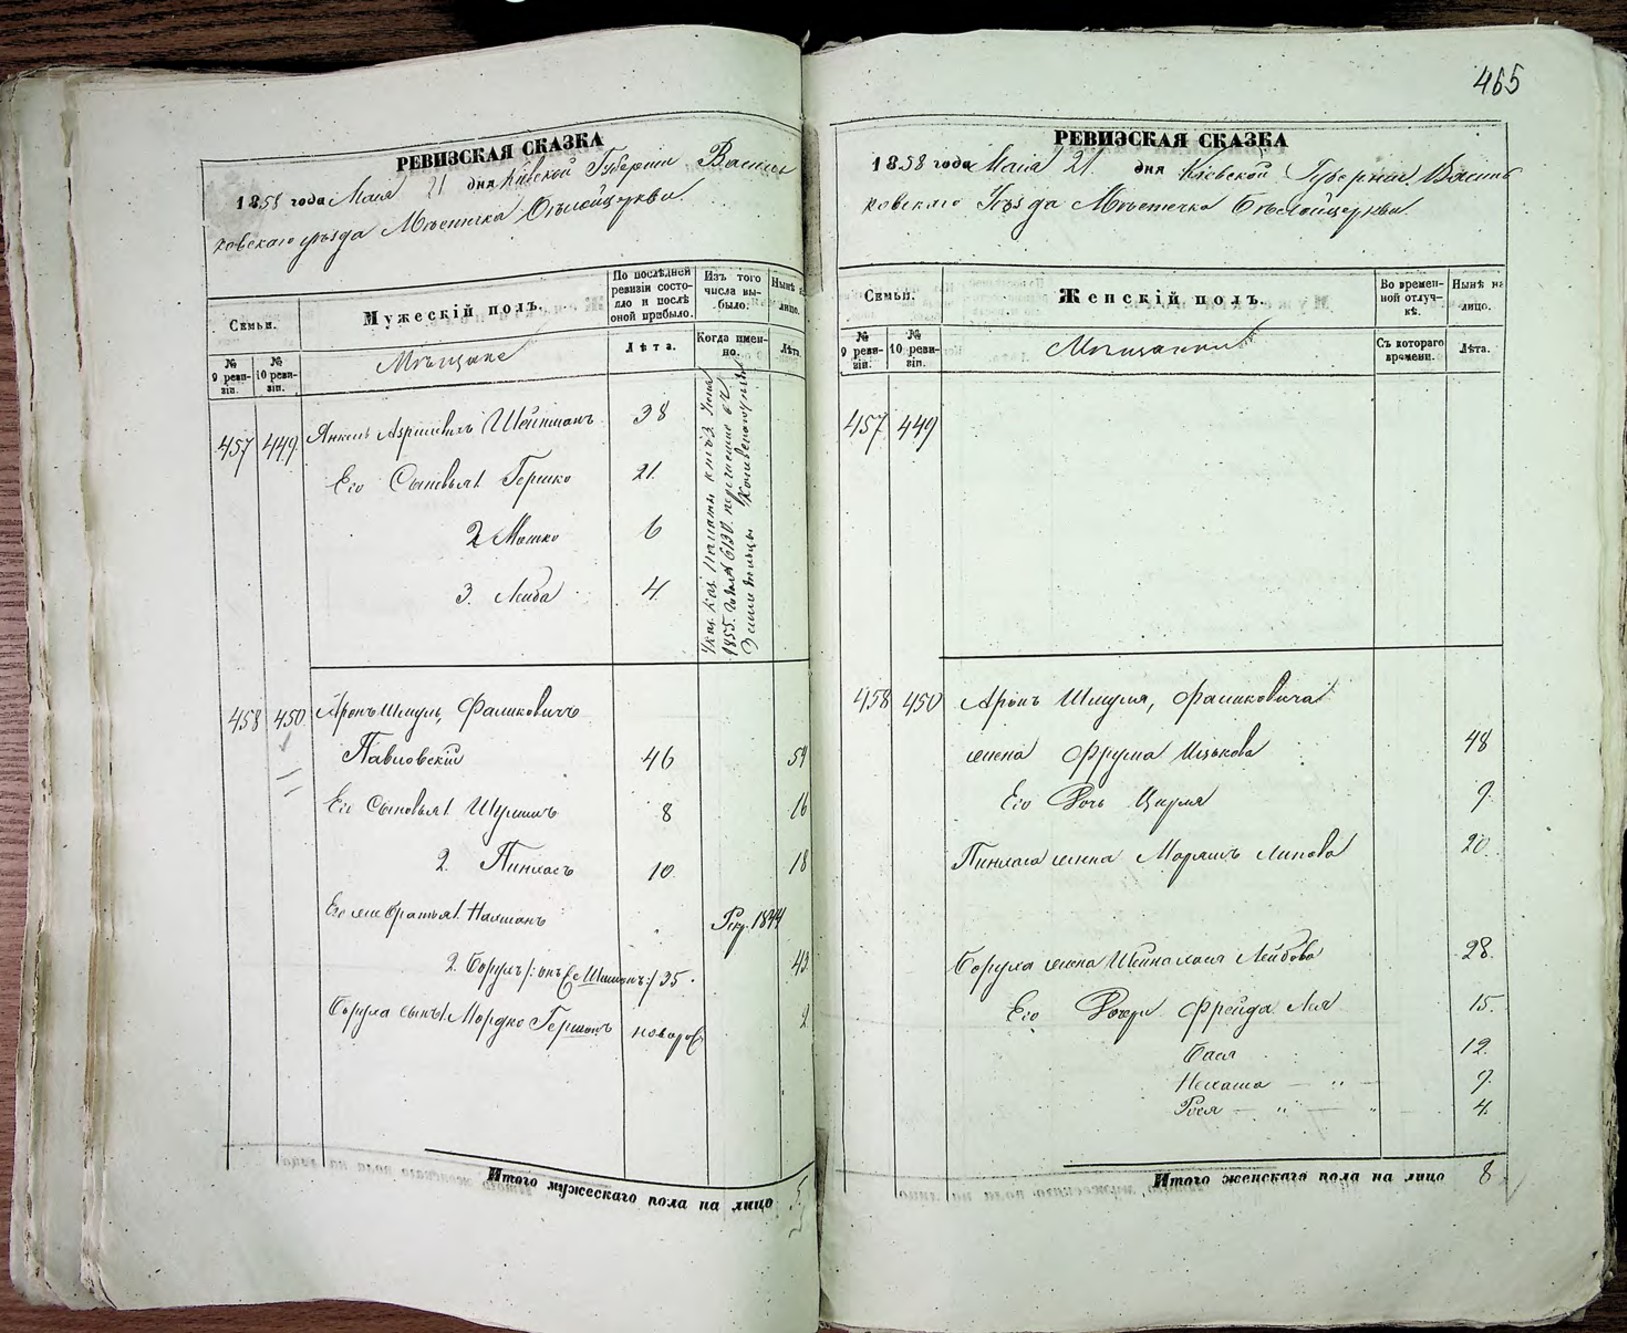 465
РЕВИЗСКАЯ СКАЗКА
1858 года Мая 21 дня Кіевской Губерніи Василь
ковскаго уѣзда Мѣстечка Бѣлойцеркви.
Семьи.
Мужескій полъ.
По послѣдней ревизіи состояло и послѣ оной прибыло.
Изъ того числа выбыло.
Нынѣ на лицо.
№ 9 ревизіи.
№ 10 ревизіи.
Мѣщане
Лѣта.
Когда именно.
Лѣта.
457 449 Янкель Шейтманъ 38
Его Сыновья 1. Гершко 21.
2 Мошко 6
3. Лейба 4.
Указ. Каз. Палаты
1855. года № 6130.
458 450 Аронъ Шмуль, Фаликовичъ
Павловскій 46 54
Его Сыновья 1. Шулимъ 8 16
2. Пинхасъ 10. 18
Его же братья 1. Нахманъ Рекр. 1844
2. Борухъ /: онъ же Шимонъ :/ 35. 43
Боруха сынъ 1. Мордко Гершонъ новорож 2
Итого мужескаго пола на лицо 5.
РЕВИЗСКАЯ СКАЗКА
1858 года Мая 21. дня Кіевской Губерніи. Василь
ковскаго Уѣзда Мѣстечка Бѣлойцеркви.
Семьи.
Женскій полъ.
Во временной отлучкѣ.
Нынѣ на лицо.
№ 9 ревизіи.
№ 10 ревизіи.
Мѣщанки
Съ котораго времени.
Лѣта.
457 449
458 450 Аронъ Шмуля, Фаликовича
жена Фрума Ицькова 48
Его Дочь Цирля 9.
Пинхаса жена Маріямъ Липова 20.
Боруха жена Шейналея Лейбова 28.
Его Дочери Фрейда Лея 15.
Бася 12.
Нехама — „ — 9.
Рося — „ — „ — 4.
Итого женскаго пола на лицо 8.